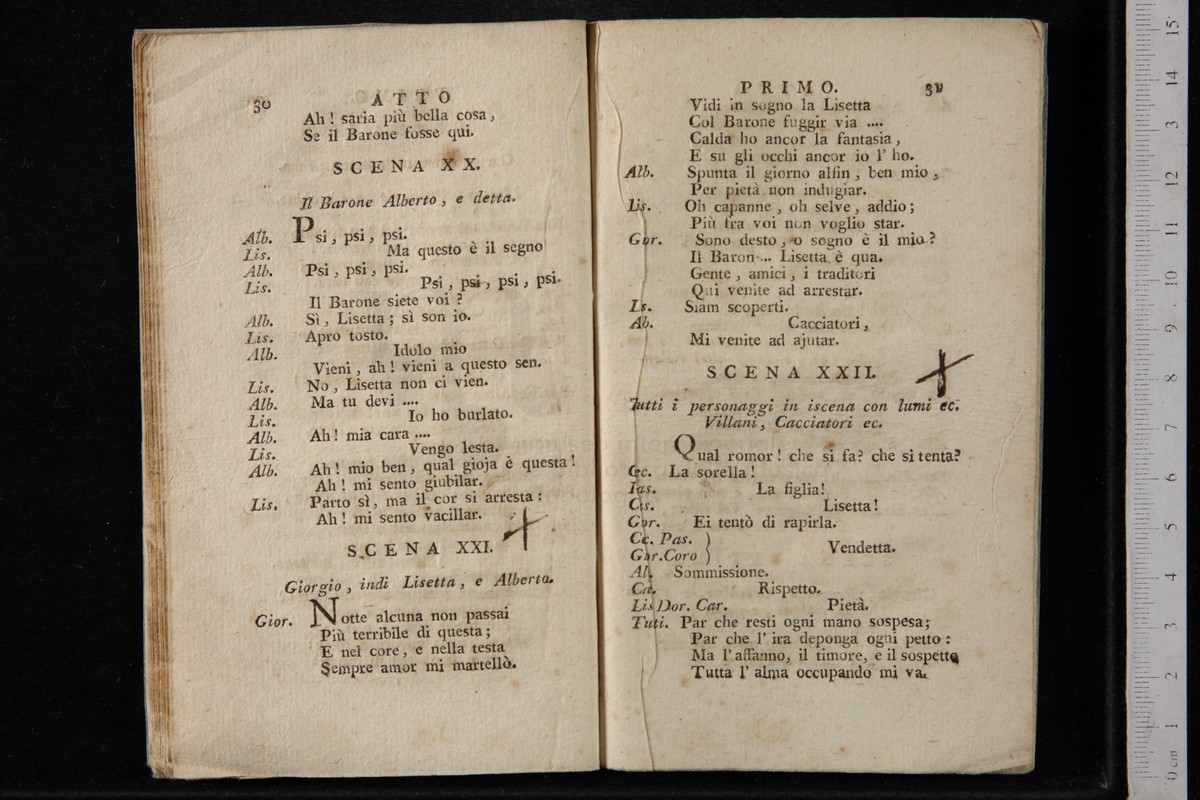 30 ATTO
Ah ! saria più bella cosa,
Se il Barone fosse qui.
SCENA XX.
Il Barone Alberto, e detta.
Alb. Psi, psi, psi.
Lis. Ma questo è il segno
Alb. Psi, psi, psi.
Lis. Psi, psi, psi, psi.
Il Barone siete voi ?
Alb. Sì, Lisetta ; sì son io.
Lis. Apro tosto.
Alb. Idolo mio
Vieni, ah ! vieni a questo sen.
Lis. No, Lisetta non ci vien.
Alb. Ma tu devi ....
Lis. Io ho burlato.
Alb. Ah ! mia cara ....
Lis. Vengo lesta.
Alb. Ah ! mio ben, qual gioja è questa !
Ah ! mi sento giubilar.
Lis. Parto sì, ma il cor si arresta :
Ah ! mi sento vacillar.
SCENA XXI.
Giorgio, indi Lisetta, e Alberto.
Gior. Notte alcuna non passai
Più terribile di questa ;
E nel core, e nella testa
Sempre amor mi martellò.
PRIMO. 31
Vidi in sogno la Lisetta
Col Barone fuggir via ....
Calda ho ancor la fantasia,
E su gli occhi ancor io l' ho.
Alb. Spunta il giorno alfin, ben mio,
Per pietà non indugiar.
Lis. Oh capanne, oh selve, addio ;
Più tra voi non voglio star.
Gor. Sono desto, o sogno è il mio ?
Il Baron ... Lisetta è qua.
Gente, amici, i traditori
Qui venite ad arrestar.
Ls. Siam scoperti.
Ab. Cacciatori,
Mi venite ad ajutar.
SCENA XXII.
Tutti i personaggi in iscena con lumi ec.
Villani, Cacciatori ec.
Qual romor ! che si fa? che si tenta?
Cec. La sorella !
Pas. La figlia!
Cis. Lisetta !
Gor. Ei tentò di rapirla.
Cc. Pas. )
Gor. Coro ) Vendetta.
Al. Sommissione.
Ca. Rispetto.
Lis Dor. Car. Pietà.
Tuti. Par che resti ogni mano sospesa;
Par che l' ira deponga ogni petto :
Ma l' affanno, il timore, e il sospetto
Tutta l' alma occupando mi va.
15
14
13
12
11
10
9
8
7
6
5
4
3
2
1
0 cm